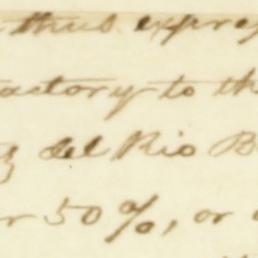 thus expre
factory to th
del Rio B
r 50%, or